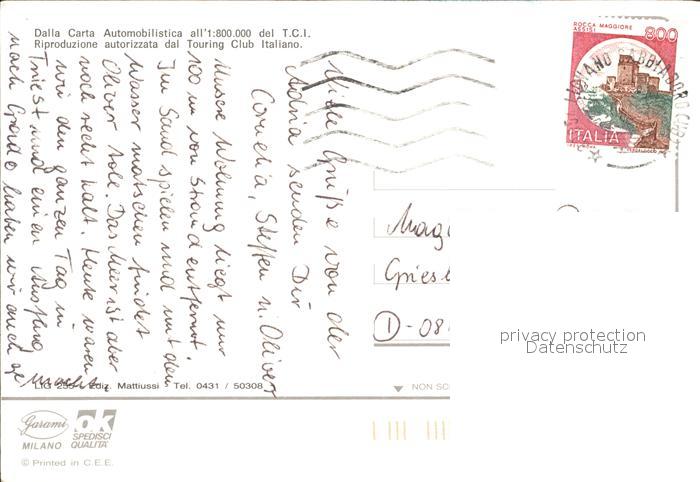 Dalla Carta Automobilistica all'1:800.000 del T.C.I.
Riproduzione autorizzata dal Touring Club Italiano.
Viele Grüße von der
Adria senden Dir
Cornelia, Steffen u. Oliver
Unsere Wohnung liegt nur
100 m vom Strand entfernt.
Im Sand spielen und mit dem
Wasser matschen findet
Oliver tole. Das Meer ist aber
noch recht kalt. Heute waren
wir den ganzen Tag in
Triest und einen Ausflug
nach Grado haben wir auch ge
macht.
LIG 255 - Ediz. Mattiussi - Tel. 0431 / 50308
Garami
MILANO
OK
SPEDISCI
QUALITÀ
© Printed in C.E.E.
ROCCA MAGGIORE
ASSISI
800
ITALIA
LIGNANO SABBIADORO
Mag
Gries
D-08
NON SC
privacy protection
Datenschutz